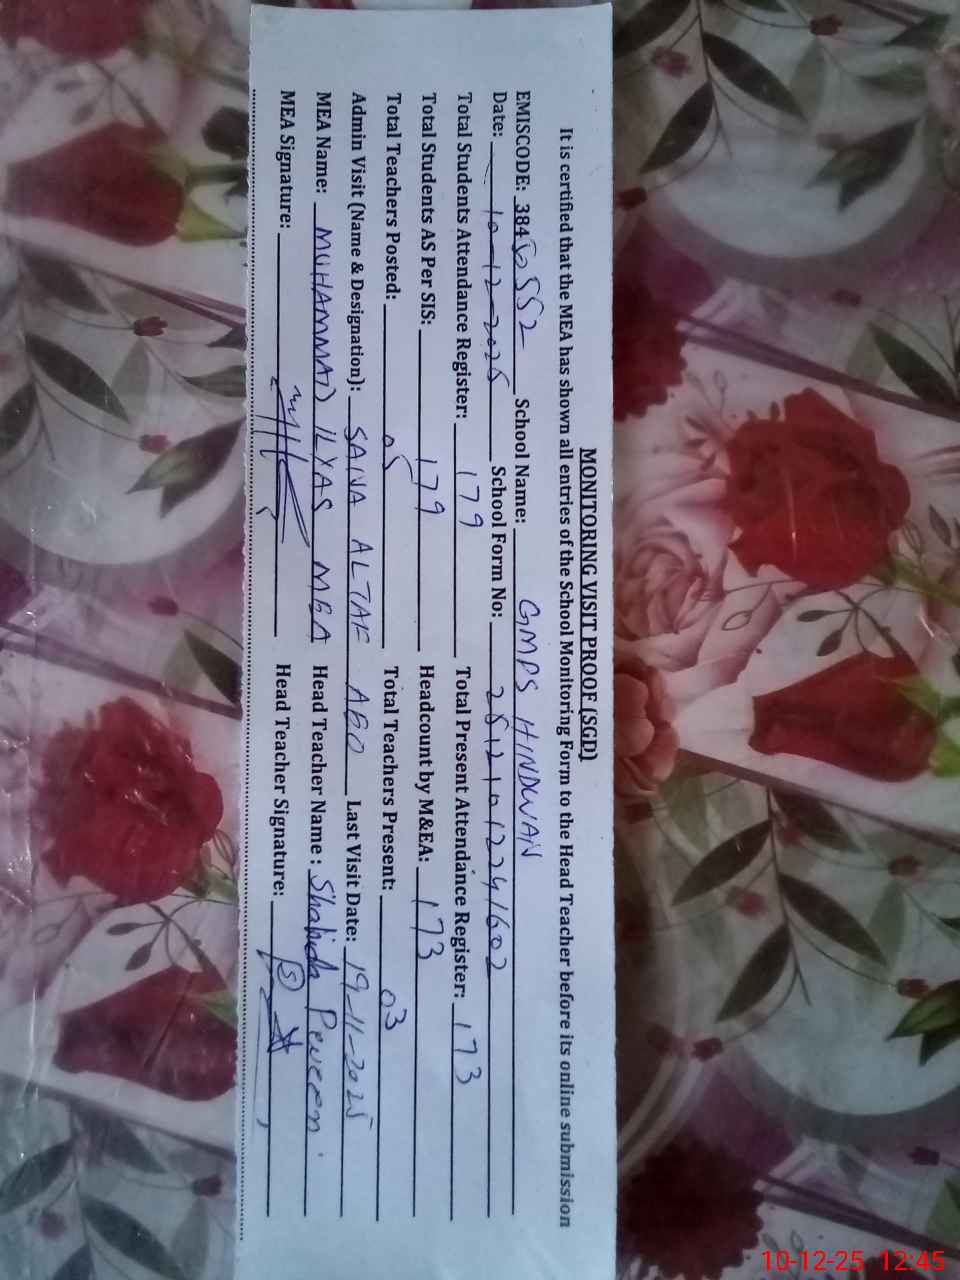 MONITORING VISIT PROOF (SGD)
It is certified that the MEA has shown all entries of the School Monitoring Form to the Head Teacher before its online submission
EMISCODE: 3846552 School Name: GMPS HINDWAN
Date: 10-12-2025 School Form No: 25121012241602
Total Students Attendance Register: 179 Total Present Attendance Register: 173
Total Students AS Per SIS: 179 Headcount by M&EA: 173
Total Teachers Posted: 05 Total Teachers Present: 03
Admin Visit (Name & Designation): SANA ALTAF AEO Last Visit Date: 19-11-2025
MEA Name: MUHAMMAD ILYAS MEA Head Teacher Name : Shahida Perveen
MEA Signature: Head Teacher Signature:
10-12-25 12:45